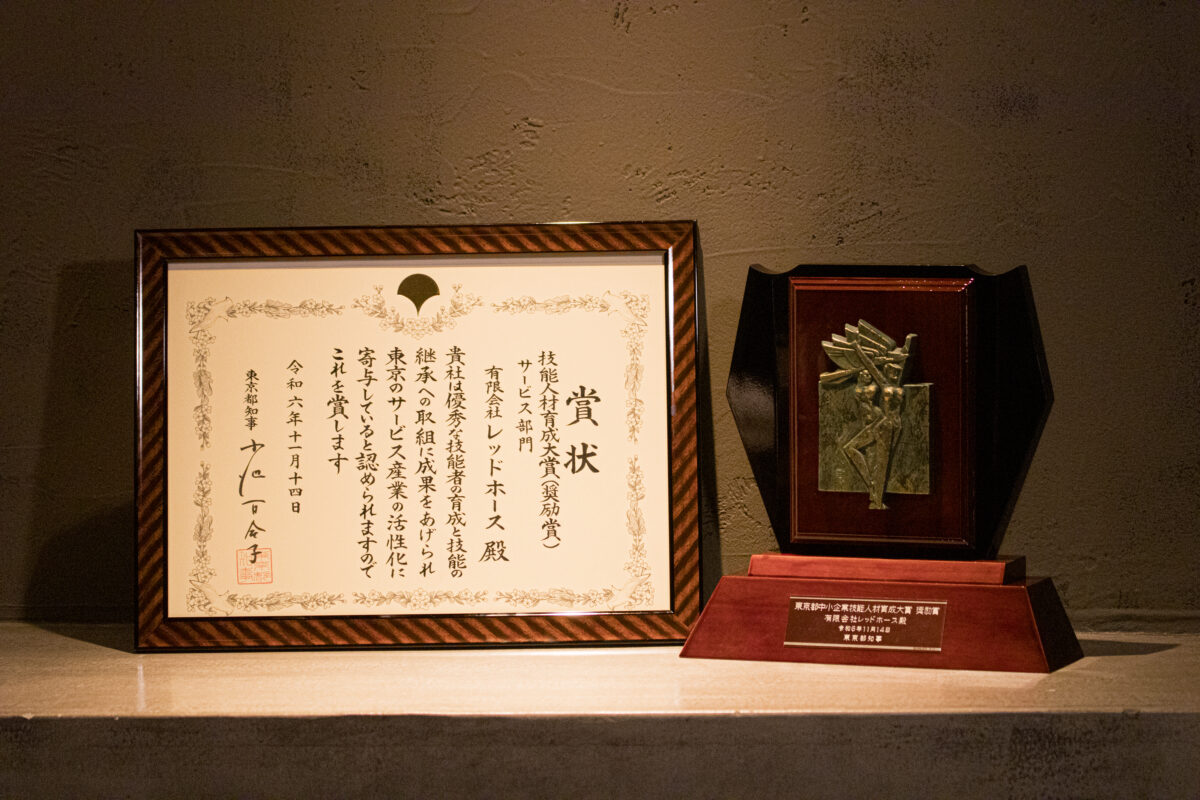 賞状
技能人材育成大賞(奨励賞)
サービス部門
有限会社レッドホース殿
貴社は優秀な技能者の育成と技能の
継承への取組に成果をあげられ
東京のサービス産業の活性化に
寄与していると認められますので
これを賞します
令和六年十一月十四日
東京都知事 小池百合子
東京都中小企業技能人材育成大賞 奨励賞
有限会社レッドホース殿
令和6年11月14日
東京都知事